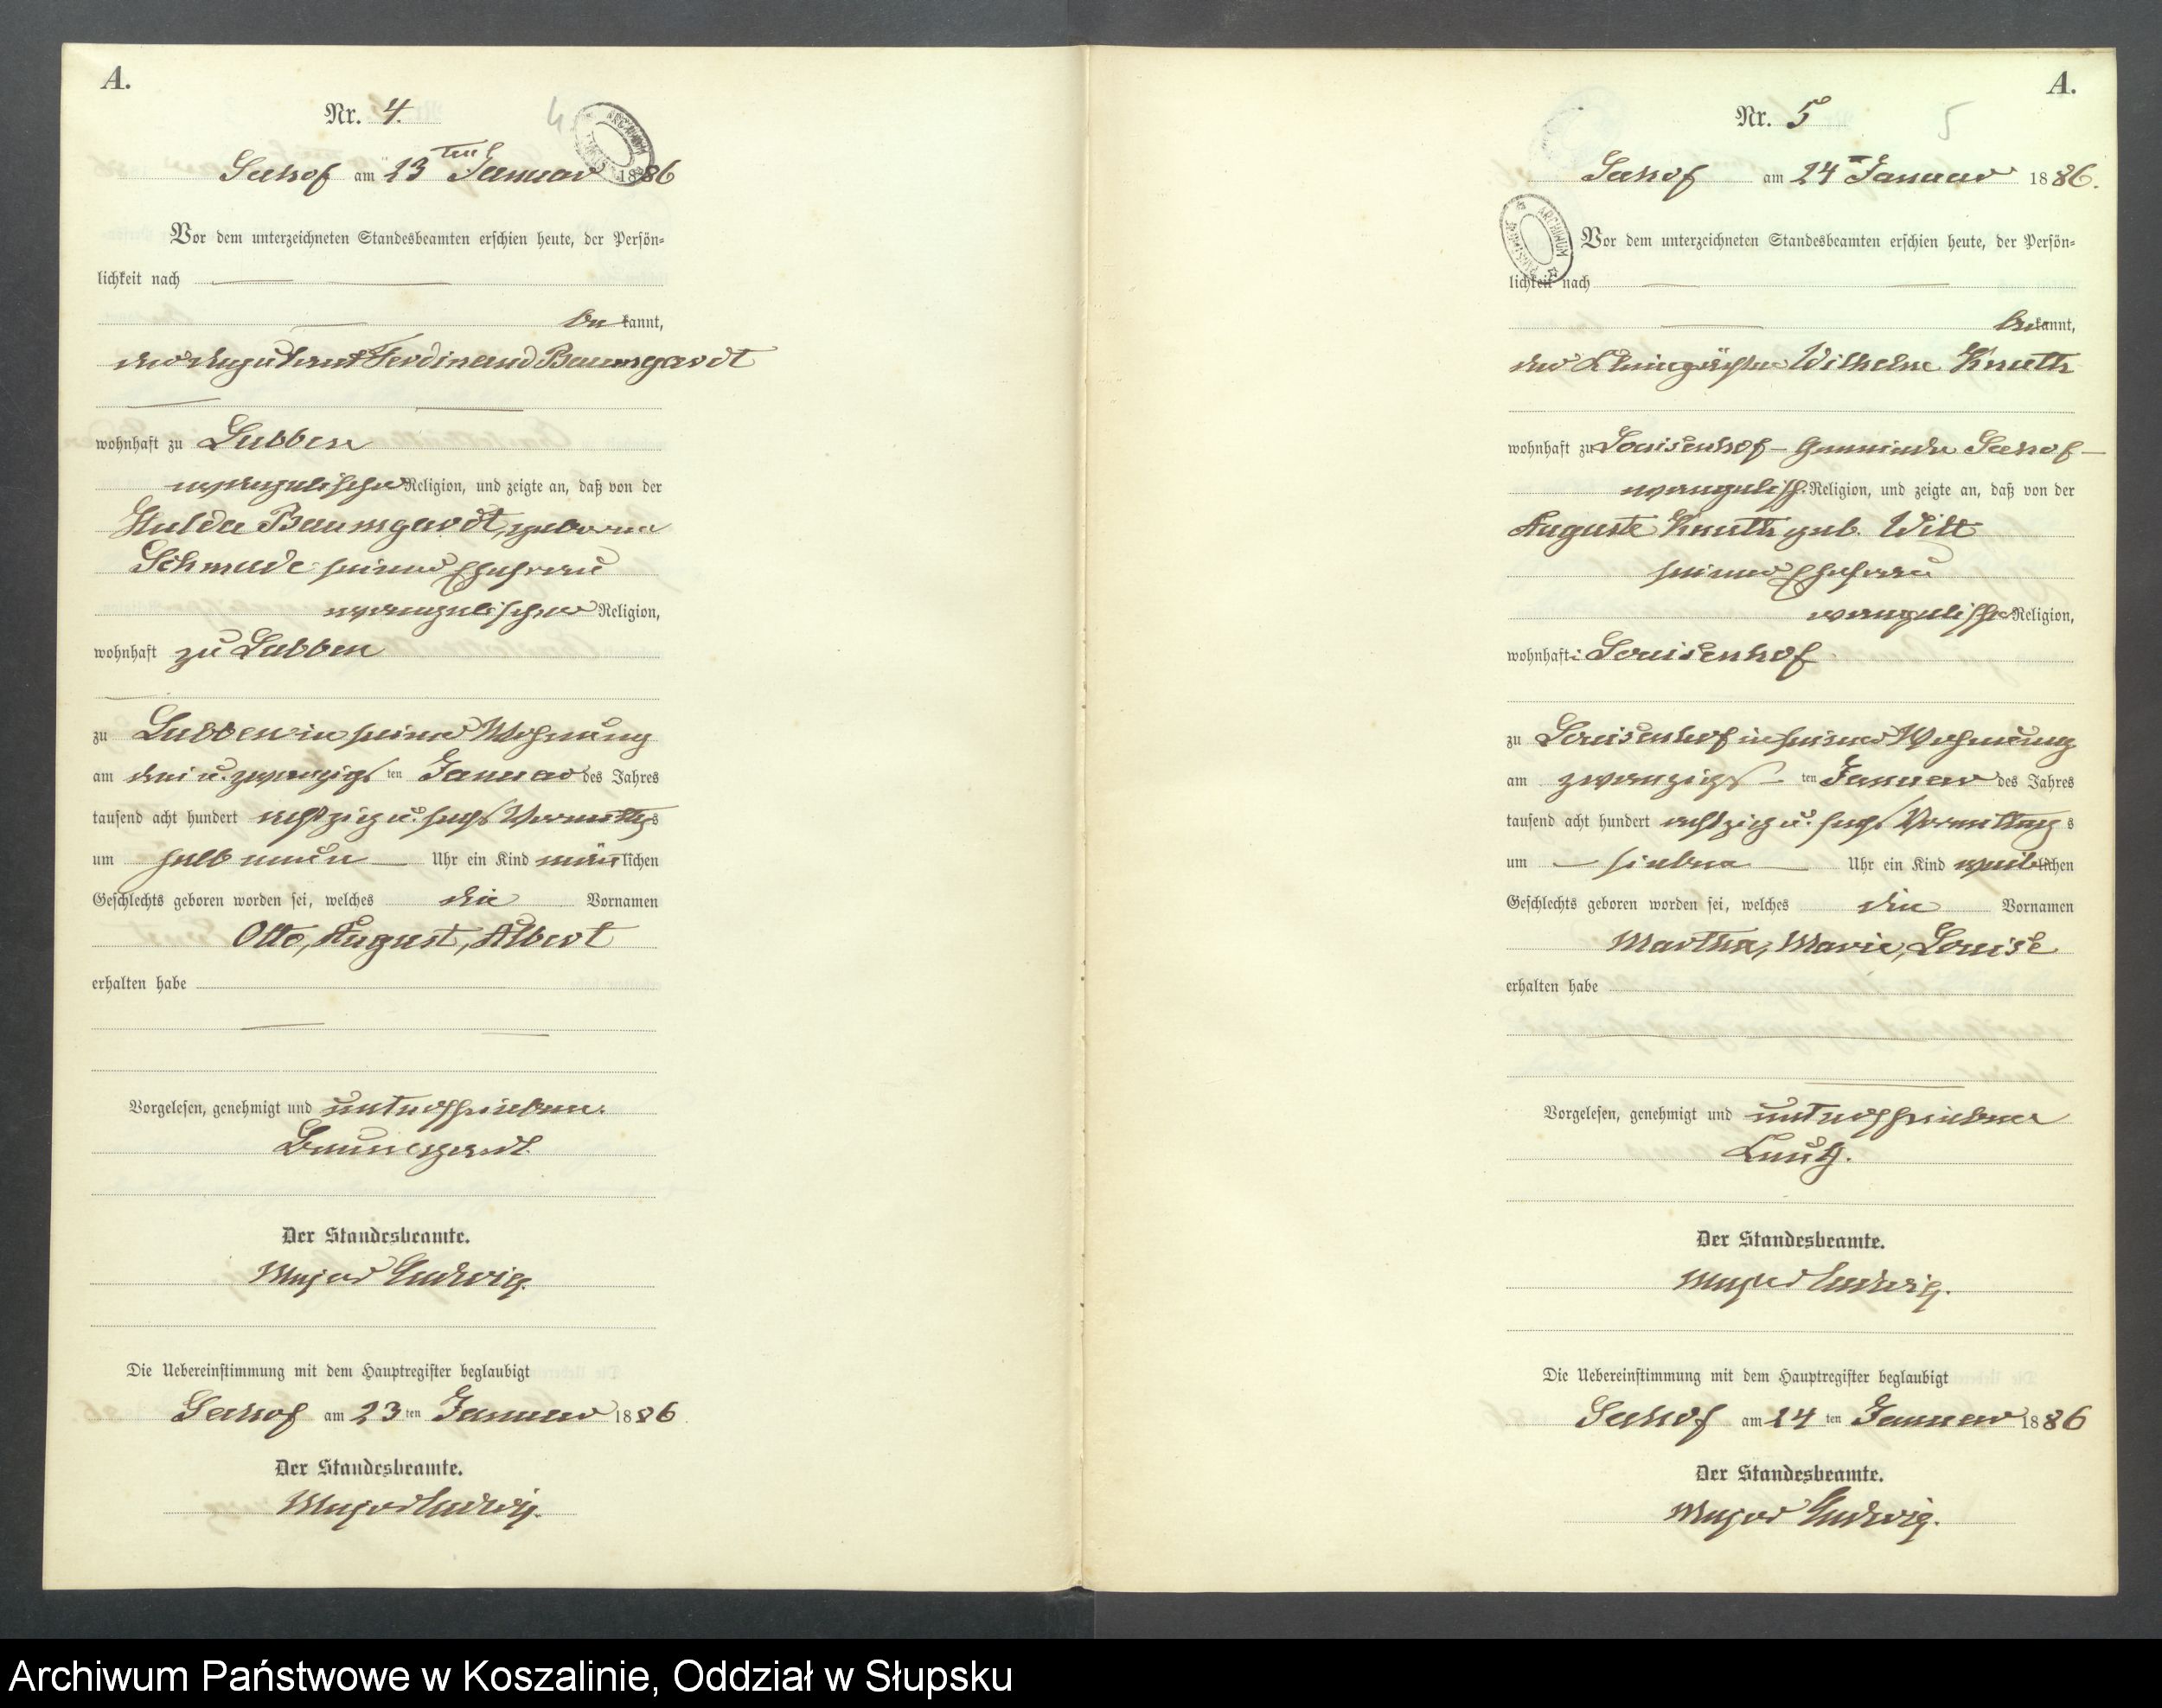 A.
Nr. 4.
4.
Seehof am 23ten Januar 1886
Vor dem unterzeichneten Standesbeamten erschien heute, der Persön-
lichkeit nach
be kannt,
der Ferdinand Baumgardt
wohnhaft zu Lubben
evangelischer Religion, und zeigte an, daß von der
Hulda Baumgardt, geborne
Schmude seiner Ehefrau
evangelischer Religion,
wohnhaft zu Lubben
zu Lubben in seiner Wohnung
am drei u. zwanzigsten Januar des Jahres
tausend acht hundert achtzig u. sechs Vormittags
um halb neun Uhr ein Kind männlichen
Geschlechts geboren worden sei, welches die Vornamen
Otto, August, Albert
erhalten habe
Vorgelesen, genehmigt und unterschrieben.
Baumgardt.
Der Standesbeamte.
Major Ludwig.
Die Uebereinstimmung mit dem Hauptregister beglaubigt
Seehof am 23 ten Januar 1886
Der Standesbeamte.
Major Ludwig.
A.
Nr. 5
5
Seehof am 24 Januar 1886.
ARCHIWUM
Vor dem unterzeichneten Standesbeamten erschien heute, der Persön-
lichkeit nach
bekannt,
der Wilhelm Knuth
wohnhaft zu Louisenhof - Gemeinde Seehof -
evangelisch. Religion, und zeigte an, daß von der
Auguste Knuth geb. Witt
seiner Ehefrau
evangelischer Religion,
wohnhaft: Louisenhof
zu Louisenhof in seiner Wohnung
am zwanzigsten Januar des Jahres
tausend acht hundert achtzig u. sechs Vormittags
um sieben Uhr ein Kind weiblichen
Geschlechts geboren worden sei, welches die Vornamen
Martha, Marie, Louise
erhalten habe
Vorgelesen, genehmigt und unterschrieben
Knuth.
Der Standesbeamte.
Major Ludwig.
Die Uebereinstimmung mit dem Hauptregister beglaubigt
Seehof am 24 ten Januar 1886
Der Standesbeamte.
Major Ludwig.
Archiwum Państwowe w Koszalinie, Oddział w Słupsku